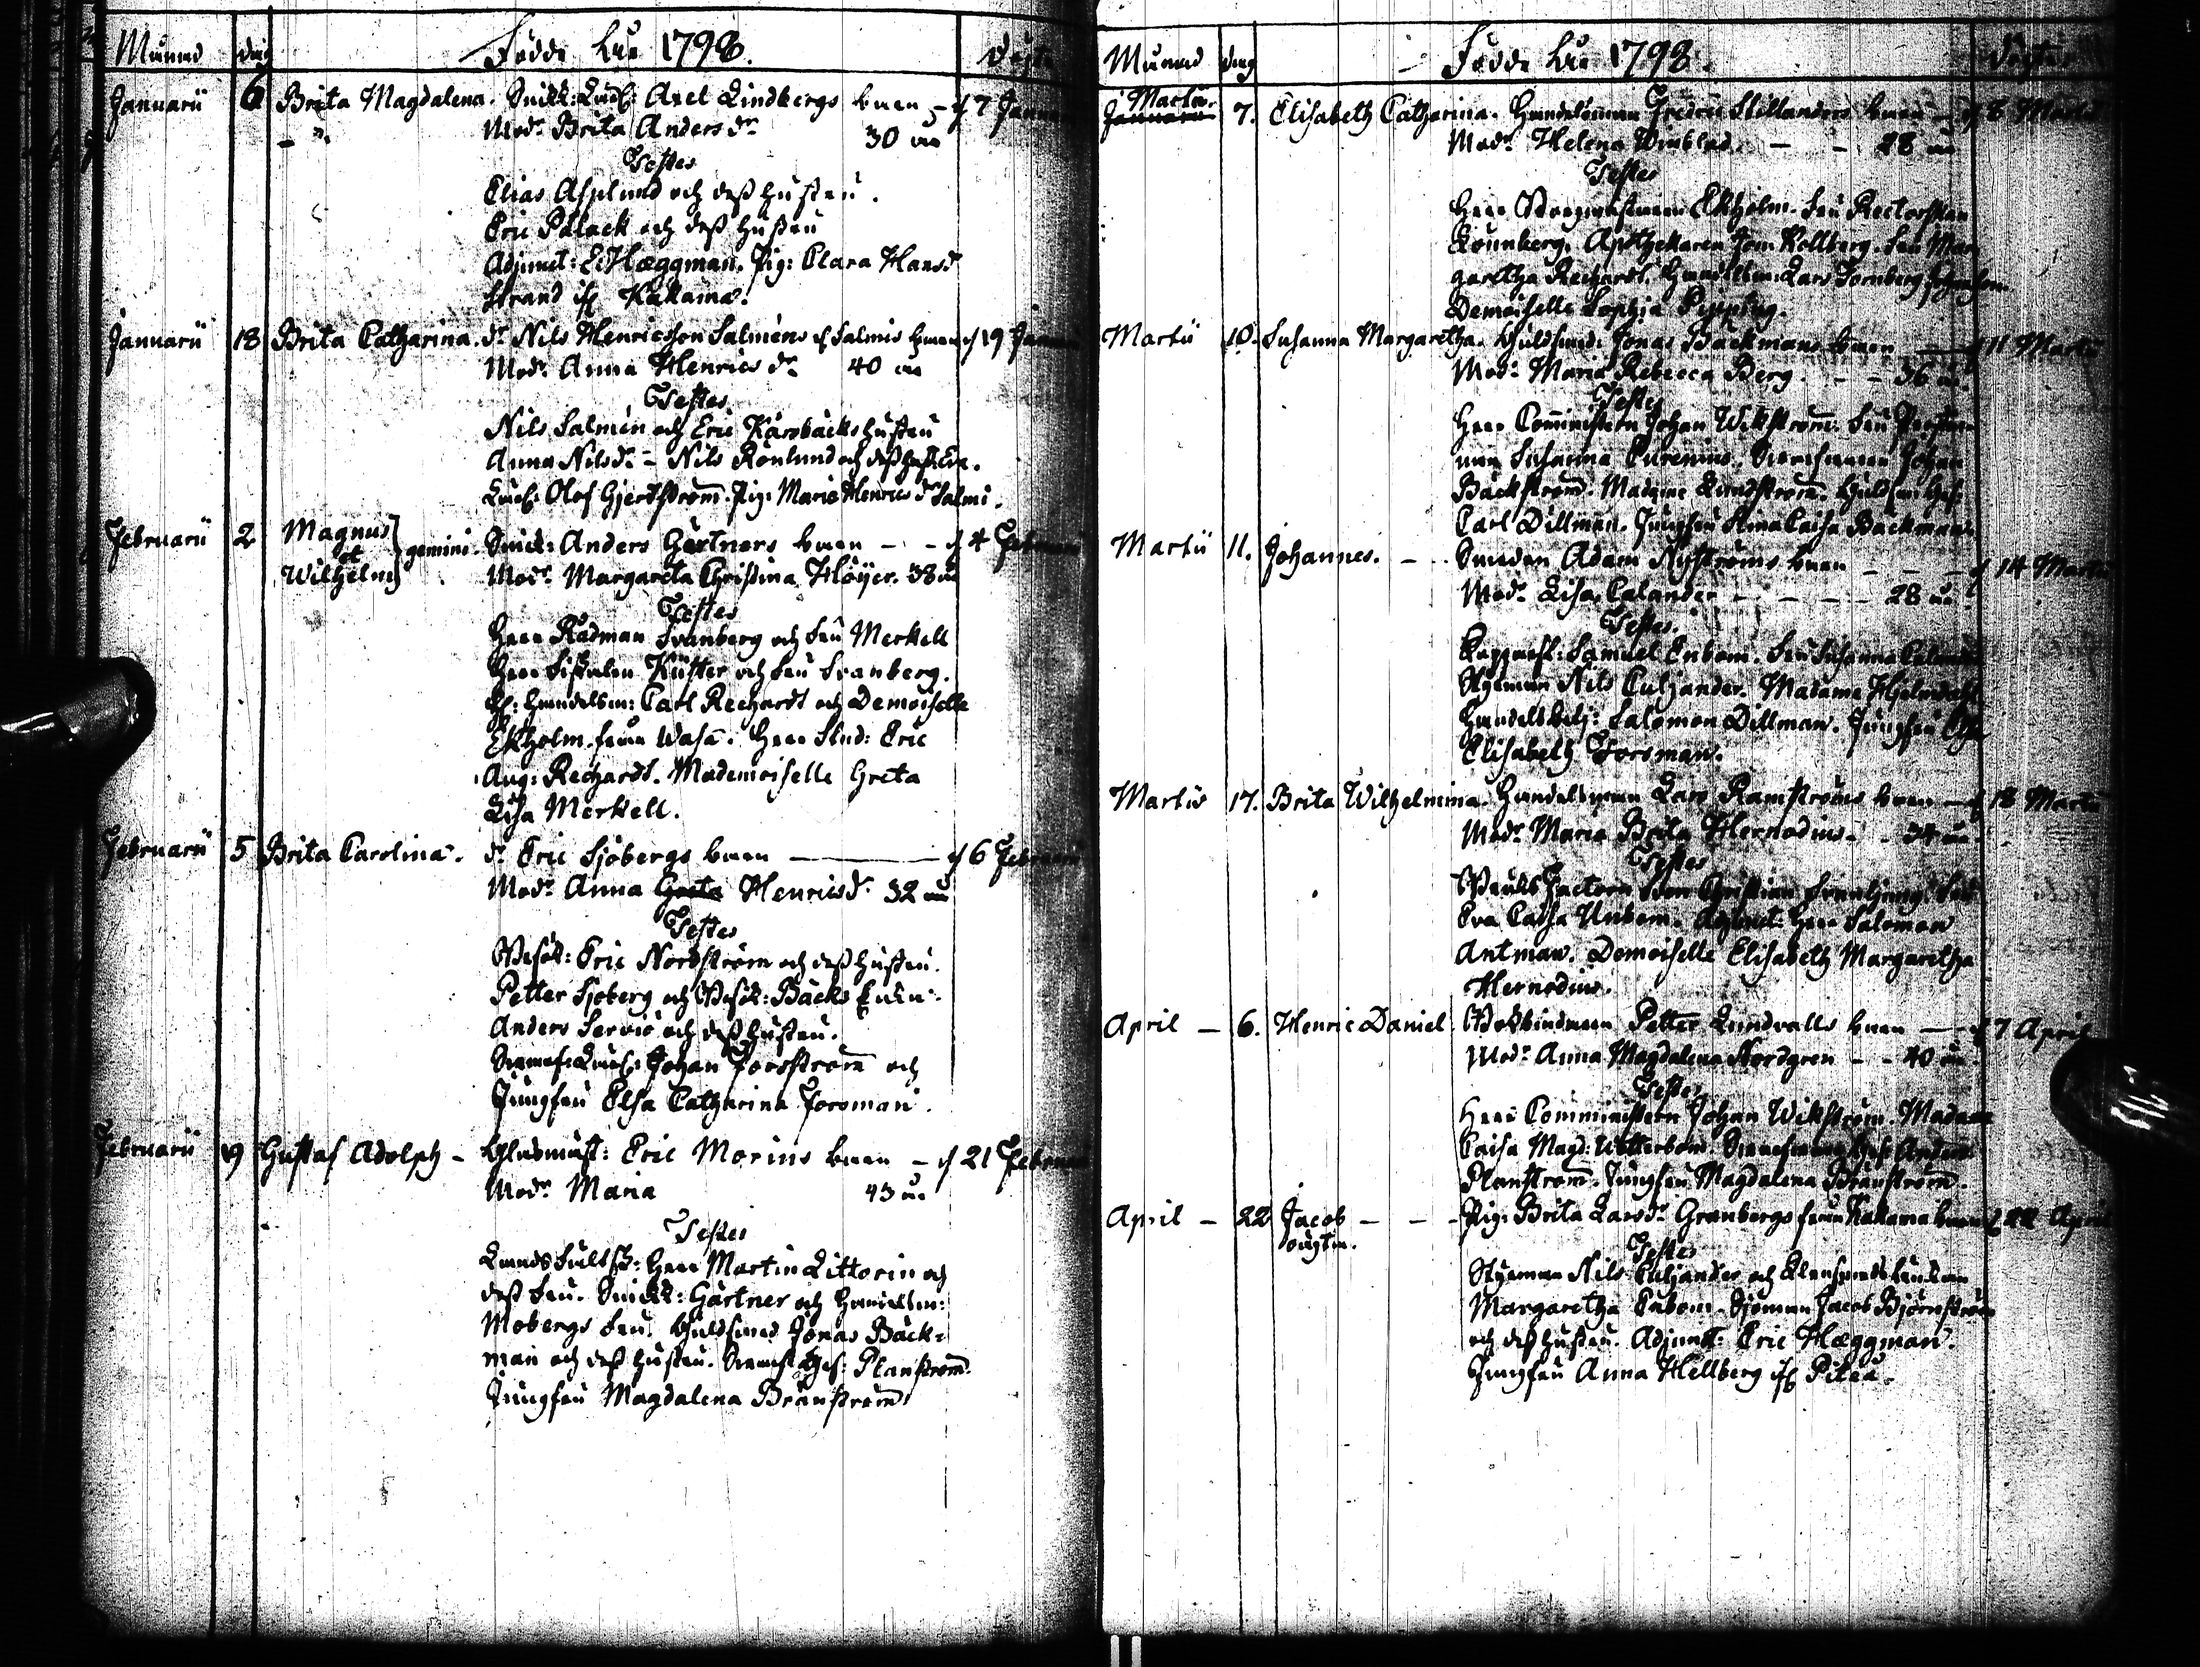 Månad dag Födde åhr 1798. Döpte
Januarii 6 Brita Magdalena. Snick: Lärl: Axel Lindbergs barn – d 7 Januarii
Modr Brita Andersdr 30 år
Testes
Elias Asplund och dess hustru.
Eric Palack och dess hustru
Adjunct: E: Hæggman. Pig: Clara Hansdr
Strand ifr Kakama.
Januarii 18 Brita Catharina. dr Nils Henricsson Salmens ifr Salmis barn d 19 Januarii
Modr Anna Henricsdr 40 år
Testes
Nils Salmén och Eric Karsbäcks hustru
Anna Nilsdr – Nils Rönlund och dess hustru.
Lärl: Olof Gjerdström. Pig: Maria Henricsdr Salmi.
Februarii 2 Magnus et Wilhelm } gemini. Snick: Anders Gärtners barn – – d 4 Februarii
Modr Margareta Christina Höijer. 38 år
Testes
Herr Rådman Svanberg och Fru Merkell
Herr Fiskalen Küster och Fru Svanberg.
Handelsm: Carl Rechardt och Demoiselle
Ekholm från Wasa. Herr Stud: Eric
Aug: Rechardt. Mademoiselle Greta
Lisa Merkell.
Februarii 5 Brita Carolina. dr Eric Sjöbergs barn — d 6 Februarii
Modr Anna Greta Henricsdr 32 år
Testes
Eric Nordström och dess hustru.
Petter Sjöberg och Bäcks Enka.
Anders Servio och dess hustru.
Johan Forsström och
Jungfru Elsa Catharina Forsman.
Februarii 19 Gustaf Adolph – Glasmäst: Eric Morins barn – d 21 Februarii
Modr Maria 43 år
Testes
Herr Martin Littorin och
dess Fru. Snick: Gärtner och Handelsm:
Mobergs Fru. Guldsmed Jonas Back-
man och dess hustru. Planström.
Jungfru Magdalena Brönström
Månad dag Födde åhr 1798. Döpte
Martii Januarii 7. Elisabeth Catharina. Handelsman Fredric Stillanders barn – d 8 Martii
Modr Helena Winblad. – – 28 år
Testes
Herr Borgmästaren Ekholm. Fru Rectorskan
Apothekaren Kollberg. Fru Mar-
garetha Rechardt. Handelsm: Lars Tornberg
Demoiselle Sophia Pipping.
Martii 10. Susanna Margaretha. Guldsmed: Jonas Backmans barn – d 11 Martii
Modr Maria Rebecca Berg. – – 36 år
Testes
Herr Comministern Johan Wikström. Fru
Susanna Curenius. Johan
Bäckström. Madame Lundström.
Carl Dillman. Jungfru Caisa Backman.
Martii 11. Johannes. – Adam Nyströms barn – – d 14 Martii
Modr Lisa Calander – – – 28 år
Testes.
Samuel Enbom. Fru Susanna
Styrman Nils Culjander. Madame
Salomon Dillman. Jungfru
Elisabeth Forsman.
Martii 17. Brita Wilhelmina. Handelsman Lars Ramströms barn – d 18 Martii
Modr Maria Brita Hernodius – 34 år
Testes
Eva Caisa Unbom. Adjunct: Herr Salomon
Antman. Demoiselle Elisabeth Margaretha
Hernodius.
April – 6. Henric Daniel. Bokbindaren Petter Lundvalls barn — d 7 April
Modr Anna Magdalena Nordgren – – 40 år
Testes
Herr Comministern Johan Wikström. Madame
Caisa Magd: Wetterbom. Anders
Planström. Jungfru Magdalena Brönström.
April – 22 Jacob – – – Pig: Brita Larsdr Granbergs från Kakama barn d 22 April
oägta.
Testes
Styrman Nils Culjander och
Margaretha Enbom. Sjöman Jacob Björnström
och dess hustru. Adjunct: Eric Hæggman.
Jungfru Anna Hellberg ifr Piteå.